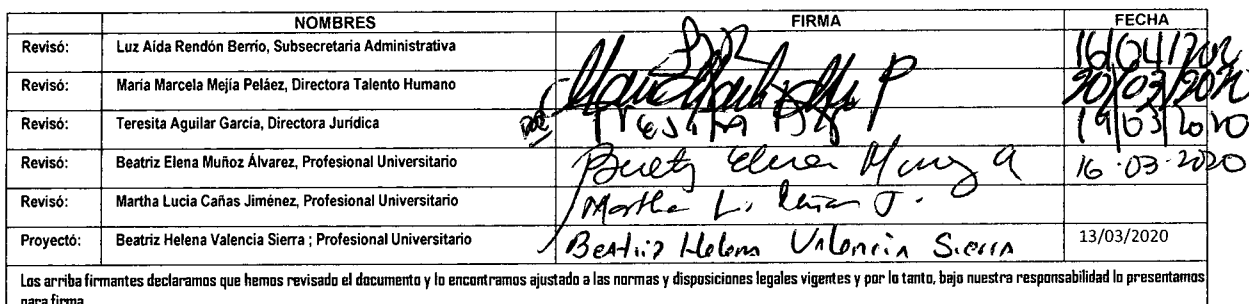 NOMBRES FIRMA FECHA
Revisó: Luz Aida Rendón Berrio, Subsecretaria Administrativa 16/04/202
Revisó: María Marcela Mejía Peláez, Directora Talento Humano 20/03/2020
Revisó: Teresita Aguilar García, Directora Jurídica Teresita 19/03/2020
Revisó: Beatriz Elena Muñoz Álvarez, Profesional Universitario Beatriz Elena Munoz A 16-03-2020
Revisó: Martha Lucia Cañas Jiménez, Profesional Universitario Martha L. Cañas J.
Proyectó: Beatriz Helena Valencia Sierra ; Profesional Universitario Beatriz Helena Valencia Sierra 13/03/2020
Los arriba firmantes declaramos que hemos revisado el documento y lo encontramos ajustado a las normas y disposiciones legales vigentes y por lo tanto, bajo nuestra responsabilidad lo presentamos
para firma